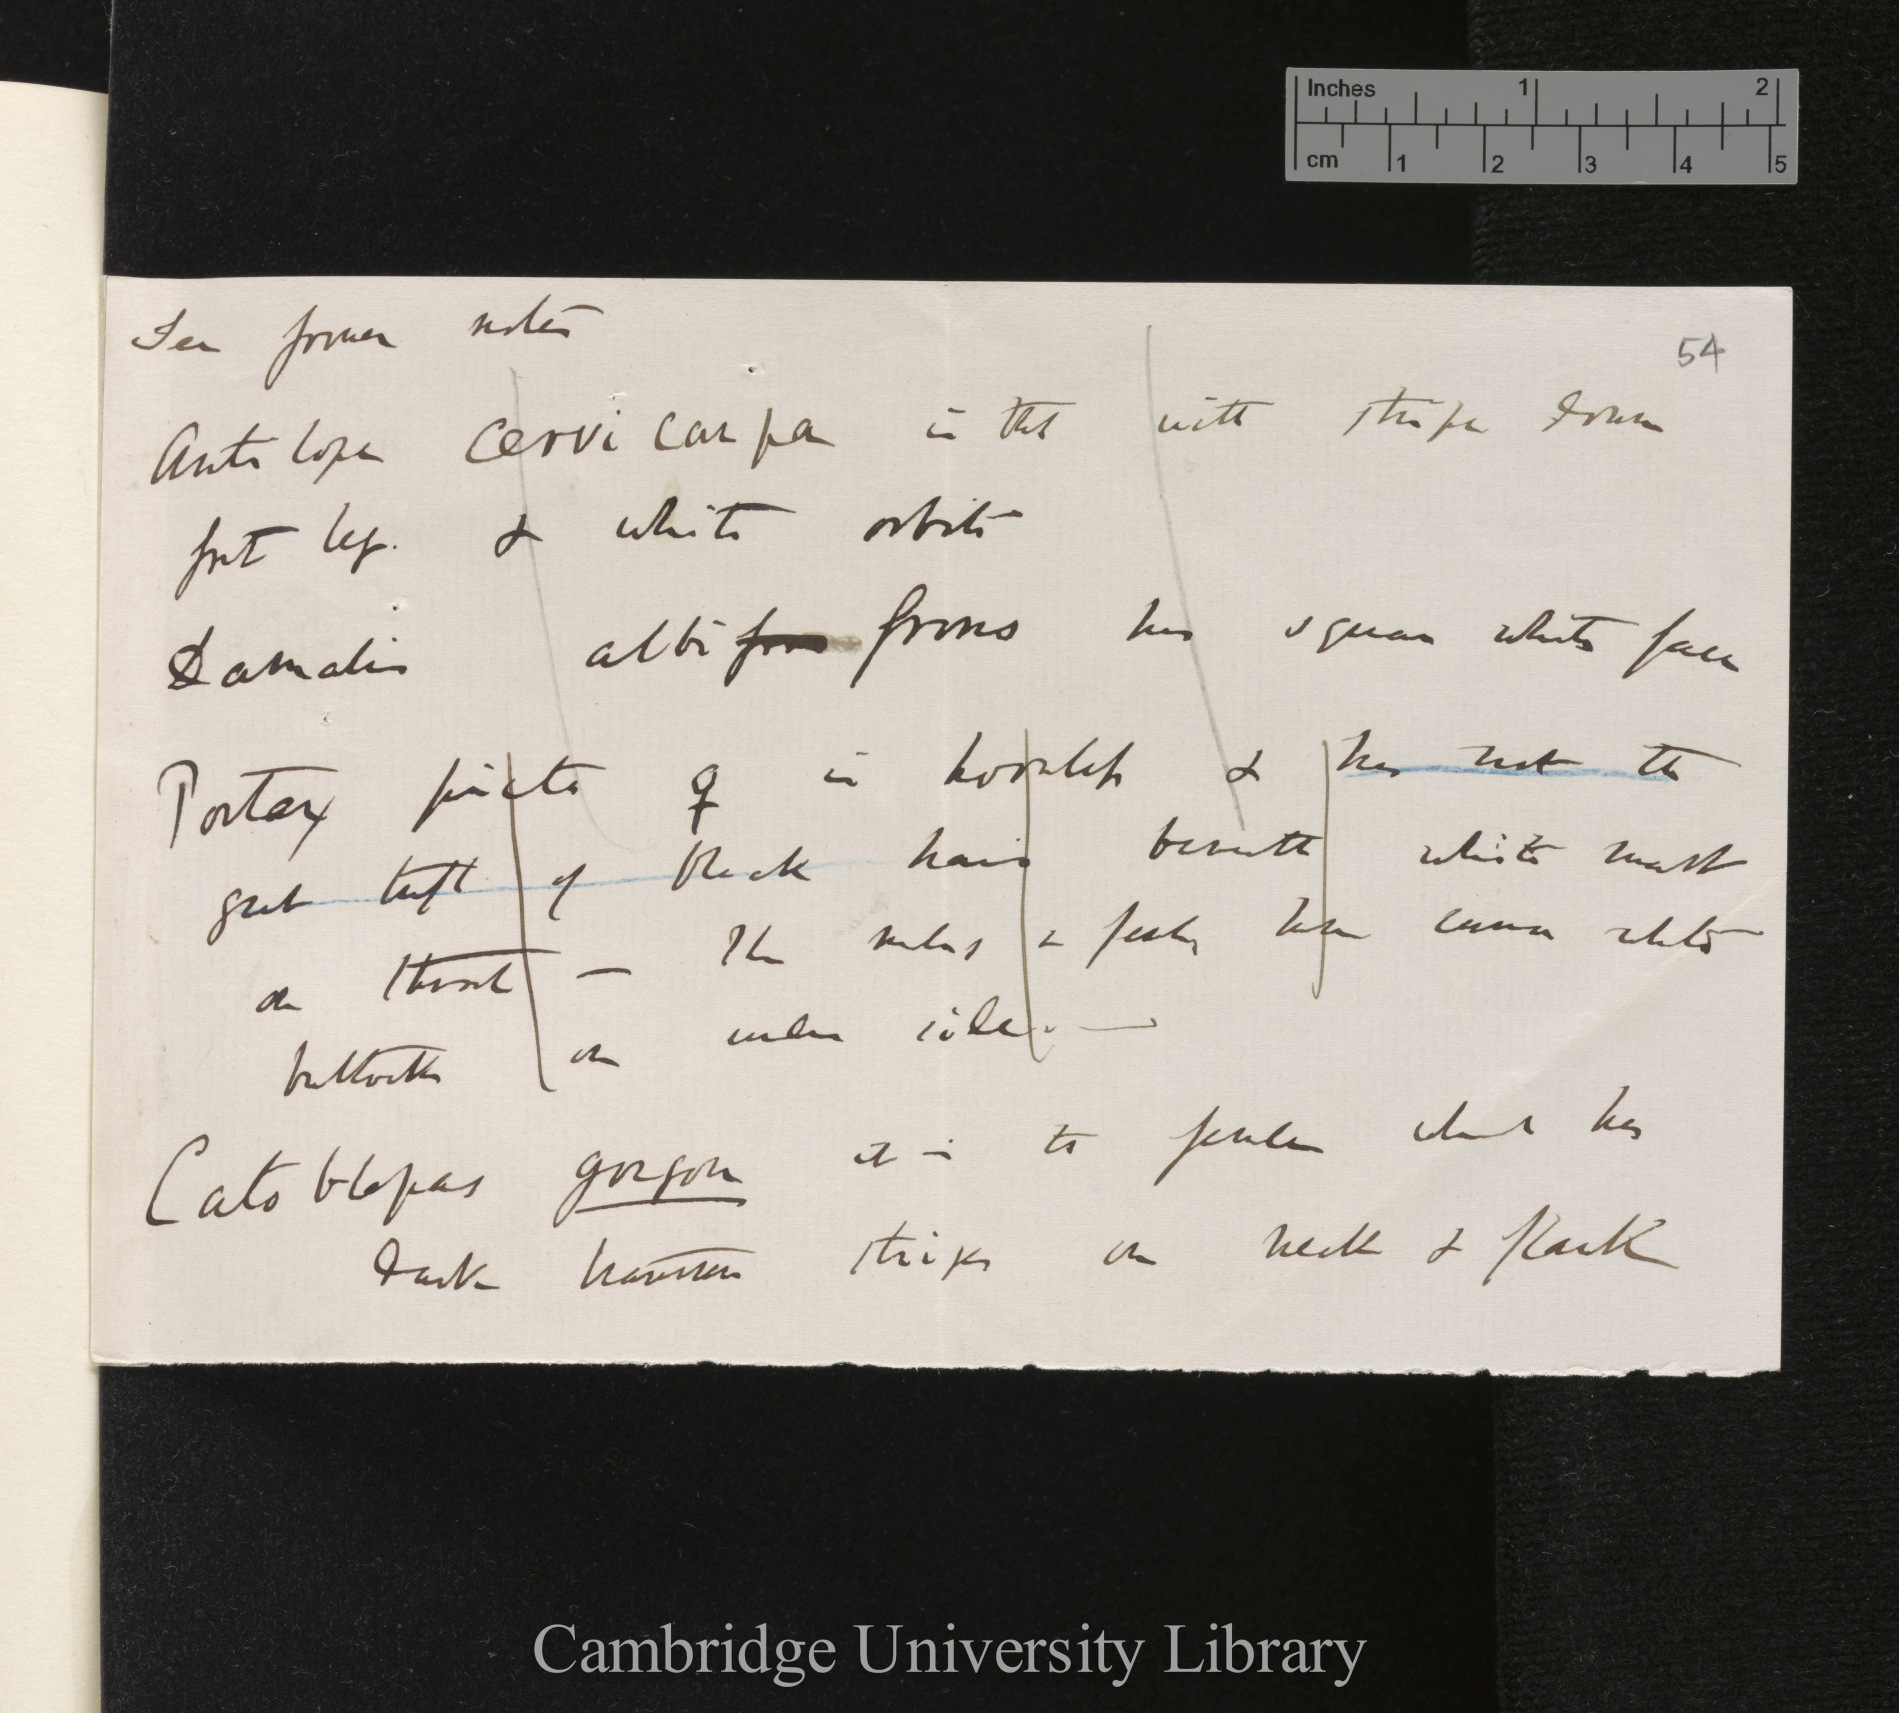 Inches 1 2
cm 1 2 3 4 5
54
See former notes
Antelope Cervicarpa is that with stripe down
front leg. & white orbits
Damalis albi fron frons has square white face
Portax picta ♀ is hornless & has not the
great tuft of black hair beneath white mark
on throat — The males & females have same white
buttocks on under side. —
Catoblepas gorgon it is the female which has
dark transverse stripes on neck & flank
Cambridge University Library